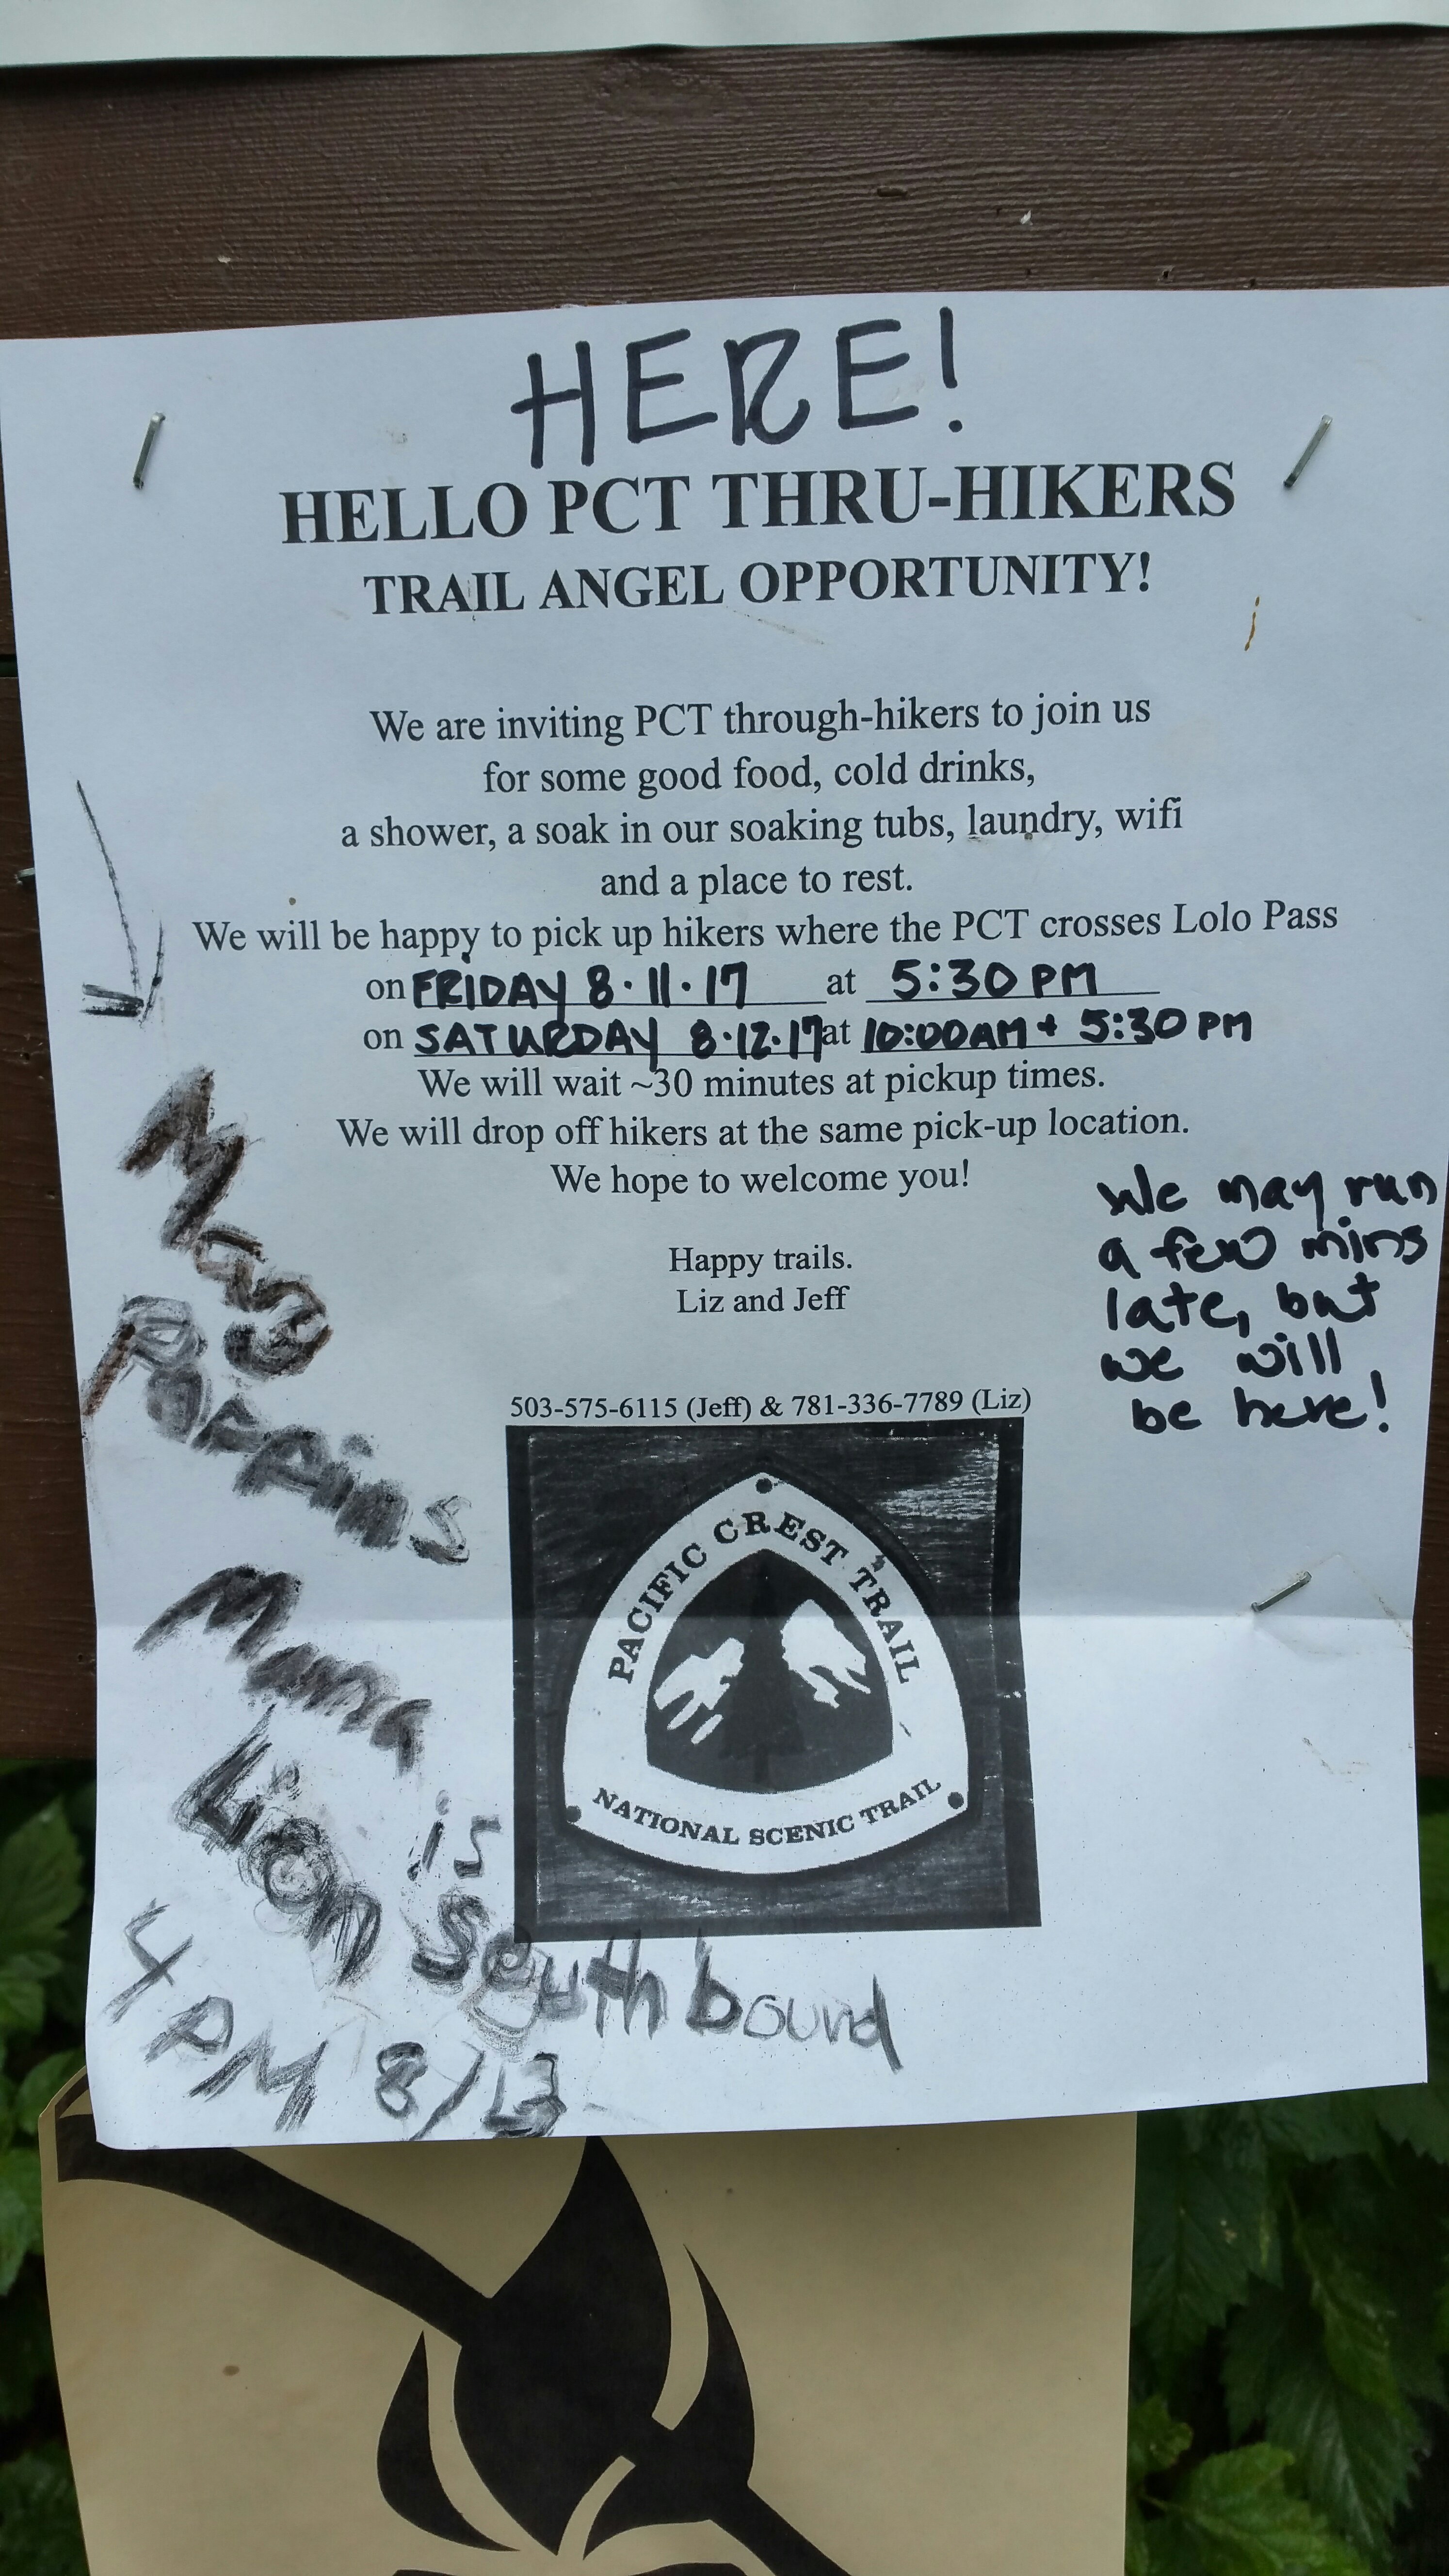 HERE!
HELLO PCT THRU-HIKERS
TRAIL ANGEL OPPORTUNITY!
We are inviting PCT through-hikers to join us
for some good food, cold drinks,
a shower, a soak in our soaking tubs, laundry, wifi
and a place to rest.
We will be happy to pick up hikers where the PCT crosses Lolo Pass
on FRIDAY 8·11·17 at 5:30 PM
on SATURDAY 8·12·17 at 10:00AM + 5:30 PM
We will wait ~30 minutes at pickup times.
We will drop off hikers at the same pick-up location.
We hope to welcome you!
Happy trails.
Liz and Jeff
We may run
a few mins
late, but
we will
be here!
503-575-6115 (Jeff) & 781-336-7789 (Liz)
PACIFIC CREST TRAIL
NATIONAL SCENIC TRAIL
Mama
Lion is
South bound
4 PM 8/13